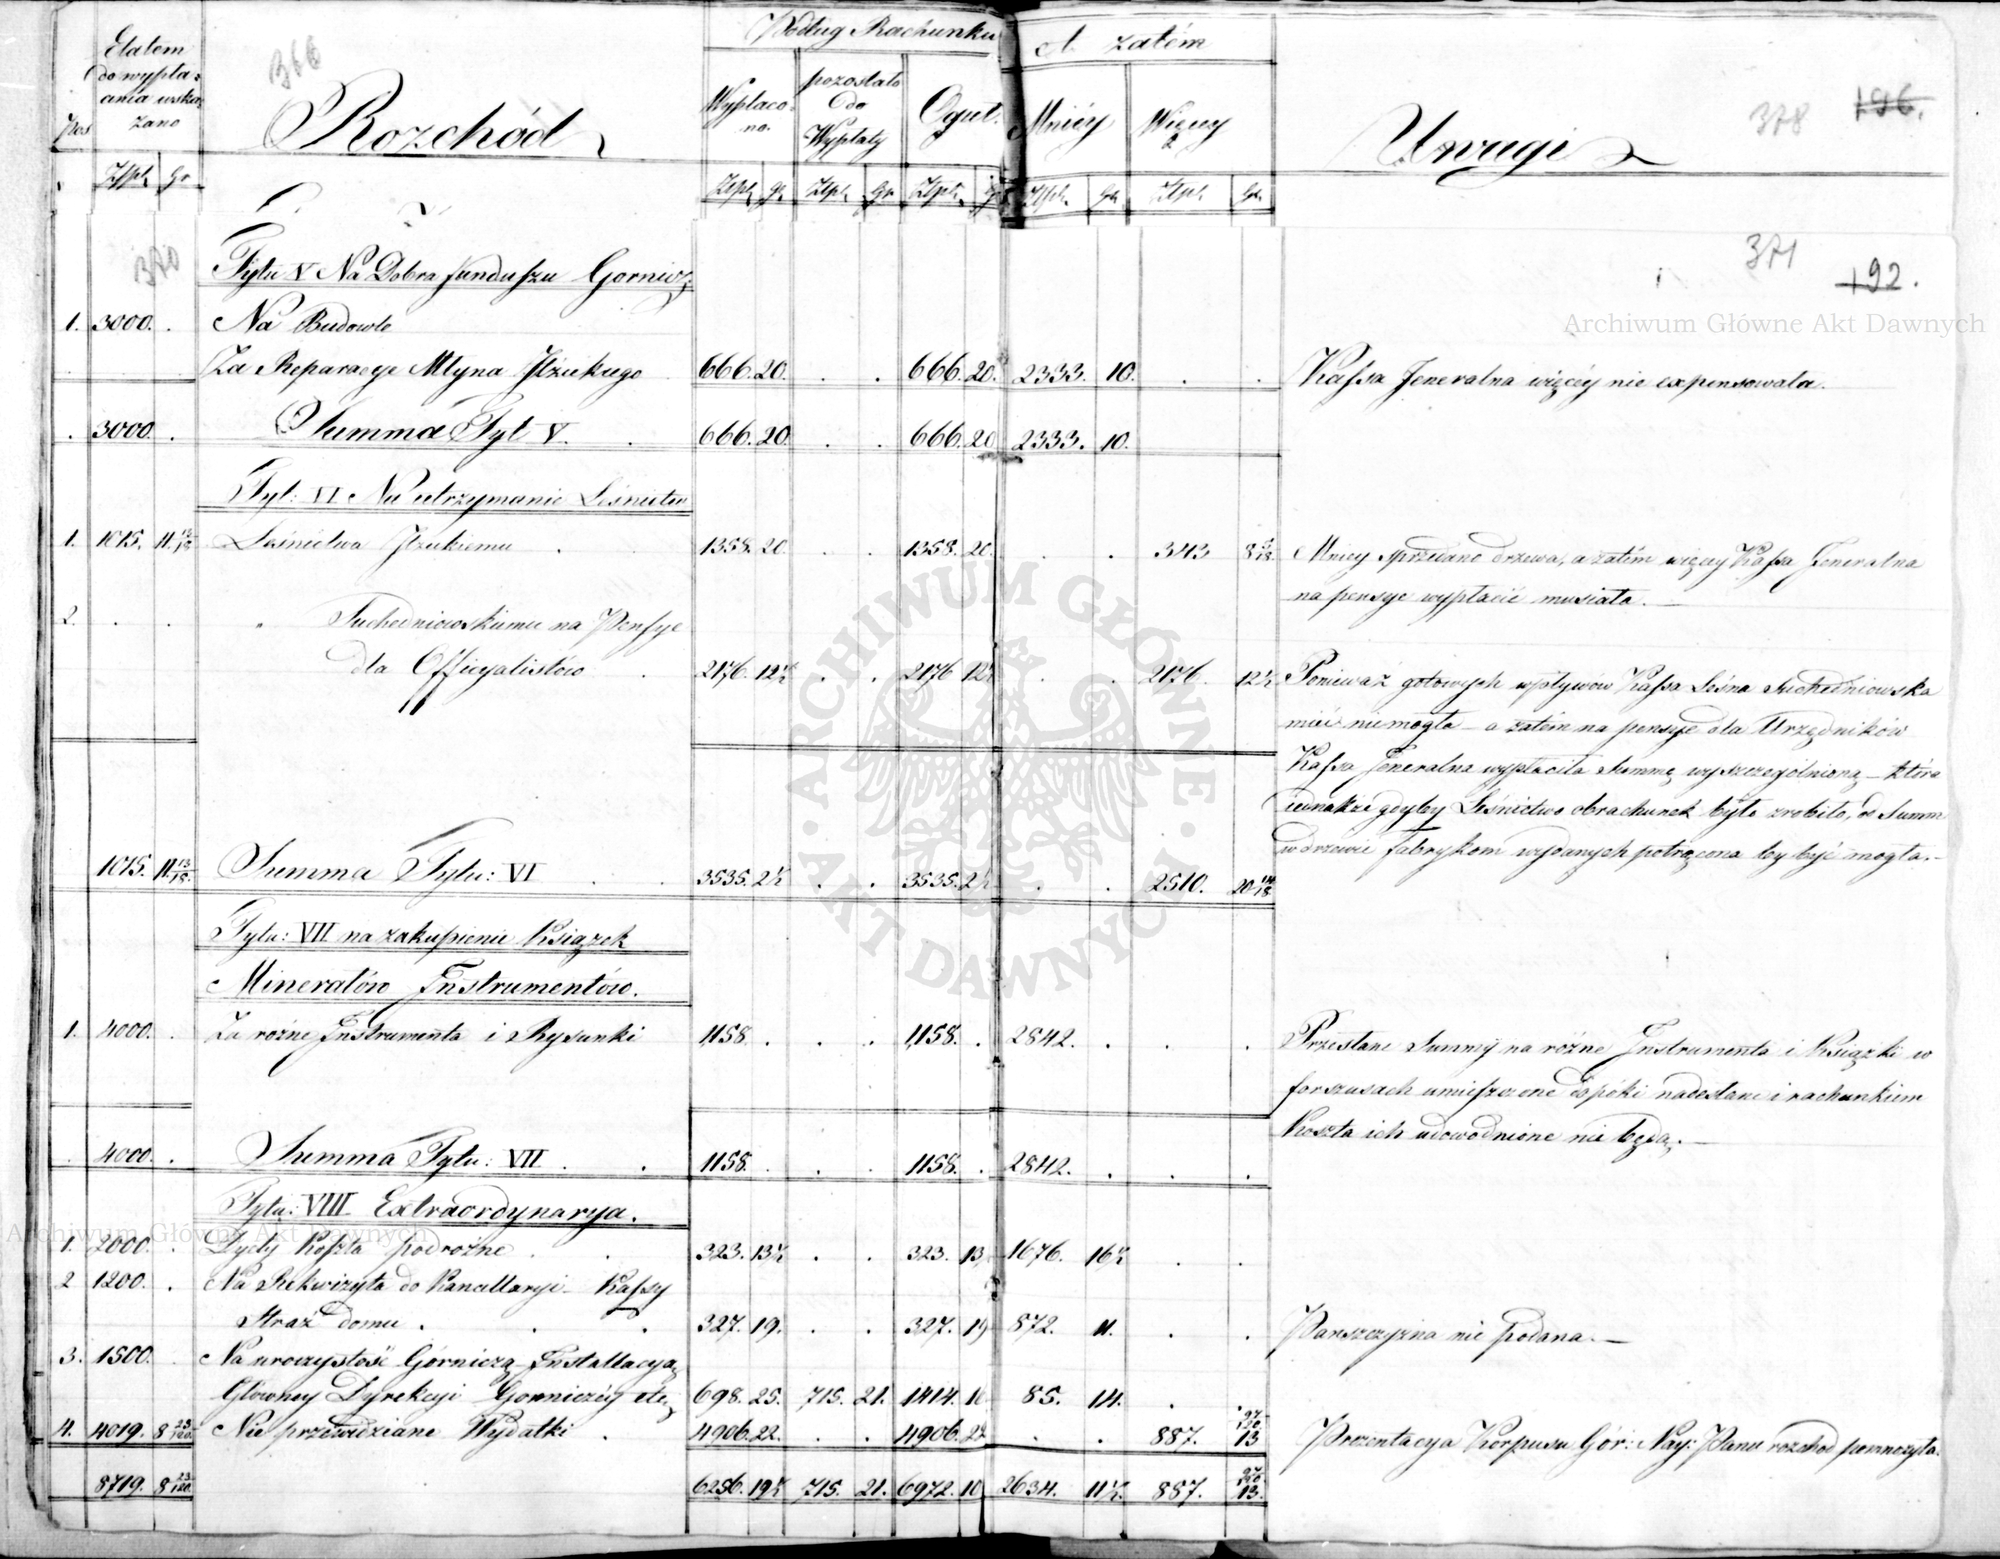 Etatem do wypłacania wskazano
Pos
366
Rozchód
Według Rachunku
A zatém
Wypłacono.
pozostało do Wypłaty
Oguł.
Mniéy
Więcey
Uwagi
378 196.
Złpl. Gr Złpl. gr. Złpl. Gr Złpl. gr Złpl. Gr. Złpl. Gr.
370
371
192.
Tytu V Na Dobra funduszu Gornicz:
1. 3000. . Na Budowle
Archiwum Główne Akt Dawnych
Za Reparacye Młyna Iłżeckiego 666. 20. . . 666. 20. 2333. 10. . . Kassa Jeneralna więcéy nie expensowała.
. 3000. . Summa Tyt V. . 666. 20. . . 666. 20 2333. 10.
Tyt: VI Na utrzymanie Leśnictw
1. 1015. 11.13/18. Leśnictwa Iłzeckiemu . 1358. 20 . . 1358. 20. . . 343 8 5/18. Mniey sprzedano drzewa, a zatém więcey Kassa Jeneralna
na pensye wypłacić musiała.—
2. . . " Suchedniowskiemu na Pensye
dla Officyalistów . 2176. 12½ . . 2176 12½ . . 2176. 12½ Ponieważ gotowych wpływów Kassa Leśna Suchedniowska
mieć niemogła — a zatém na pensye dla Urzędników
Kassa Jeneralna wypłaciła Summę wyszczególnioną — która
iednakże gdyby Leśnictwo obrachunek było zrobiło, od Summ
w drzewie fabrykom wydanych potrącona by być mogła.—
1015. 11.13/18. Summa Tytu: VI . . 3535. 2½ . . 3535. 2½ . . 2510. 20 14/18
Tytu: VII na zakupienie Książek
Minerałów Instrumentów.
1. 4000. . Za rożne Instrumenta i Rysunki 1158. . . . 1158. . 2842. . . . Przesłane Summy na różne Instrumenta i Książki w
forszusach umieszczone dopóki nadesłane i rachunkiem
Koszta ich udowodnione nie będą.—
. 4000. . Summa Tytu: VII . . 1158. . . . 1158. . 2842. . . .
Tytu: VIII Extraordynarya.
Archiwum Główne Akt Dawnych
1. 2000. . Dyety Koszta podrożne . . 323. 13½ . . 323. 13, 1676. 16½ . .
2 1200. . Na Rekwizyta do Kancellaryi - Kassy
Straż domu . . . 327. 19. . . 327. 19 872. 11. . . Panszczyzna nie podana.—
3. 1500. Na uroczystość Górniczą - Installacyą
Głowney Dyrekcyi Gorniczéy etc. 698. 25. 715. 21. 1414. 16 85. 14. .
4. 4019. 8 23/120. Nie przewidziane Wydatki . 4906. 22. . . 4906. 22 . . 887. 13 97/120 Prezentacya Korpusu Gór: Nay: Panu rozchod pomnożyła.
8719. 8 23/120. 6256. 19½ 715. 21. 6972. 10 2634. 11½. 887. 13. 97/120
ARCHIWUM GŁÓWNE · AKT DAWNYCH ·